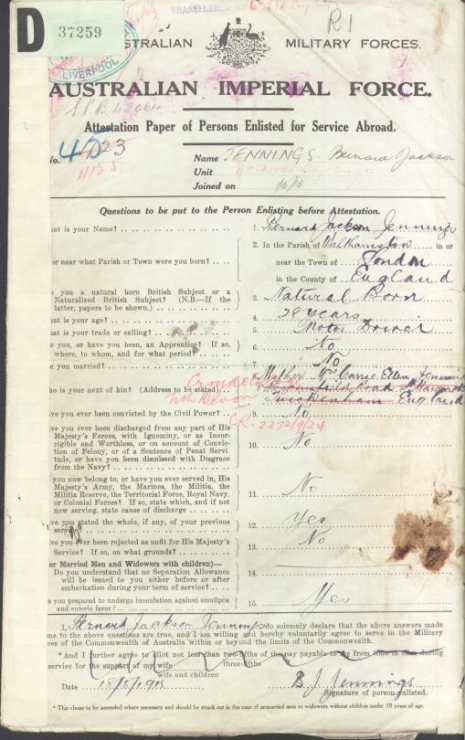 D 37259
LIVERPOOL
AUSTRALIAN MILITARY FORCES.
R1
AUSTRALIAN IMPERIAL FORCE.
Attestation Paper of Persons Enlisted for Service Abroad.
No.
Name JENNINGS Bernard Jackson
Unit
Joined on
Questions to be put to the Person Enlisting before Attestation.
hat is your Name?
1. Bernard Jackson Jennings
or near what Parish or Town were you born?
2. In the Parish of Walthamstow in or
near the Town of London
in the County of England
you a natural born British Subject or a
Naturalized British Subject? (N.B.—If the
latter, papers to be shown.)
3. Natural Born
at is your age?
4. 28 years
at is your trade or calling?
5. Motor Driver
e you, or have you been, an Apprentice? If so,
where, to whom, and for what period?
6. No
e you married?
7. No
ho is your next of kin? (Address to be stated)
8. Mother Mrs Carrie Ellen Jennings
Road
Twickenham England
ave you ever been convicted by the Civil Power?
9. No
ave you ever been discharged from any part of His
Majesty's Forces, with Ignominy, or as Incor-
rigible and Worthless, or on account of Convict-
ion of Felony, or of a Sentence of Penal Servi-
tude, or have you been dismissed with Disgrace
from the Navy?
10. No
you now belong to, or have you ever served in, His
Majesty's Army, the Marines, the Militia, the
Militia Reserve, the Territorial Force, Royal Navy,
or Colonial Forces? If so, state which, and if not
now serving, state cause of discharge
11. No
ave you stated the whole, if any, of your previous
service?
12. Yes
ave you ever been rejected as unfit for His Majesty's
Service? If so, on what grounds?
13. No
or Married Men and Widowers with children)—
Do you understand that no Separation Allowance
will be issued to you either before or after
embarkation during your term of service?
14.
e you prepared to undergo inoculation against smallpox
and enteric fever?
15. Yes
I, Bernard Jackson Jennings do solemnly declare that the above answers made
me to the above questions are true, and I am willing and hereby voluntarily agree to serve in the Military
es of the Commonwealth of Australia within or beyond the limits of the Commonwealth.
*And I further agree to allot not less than two-fifths of the pay payable to me from time to time during
three-fifths
service for the support of my wife
wife and children
Date
B. J. Jennings
Signature of person enlisted.
* This clause to be amended where necessary and should be struck out in the case of unmarried men or widowers without children under 18 years of age.